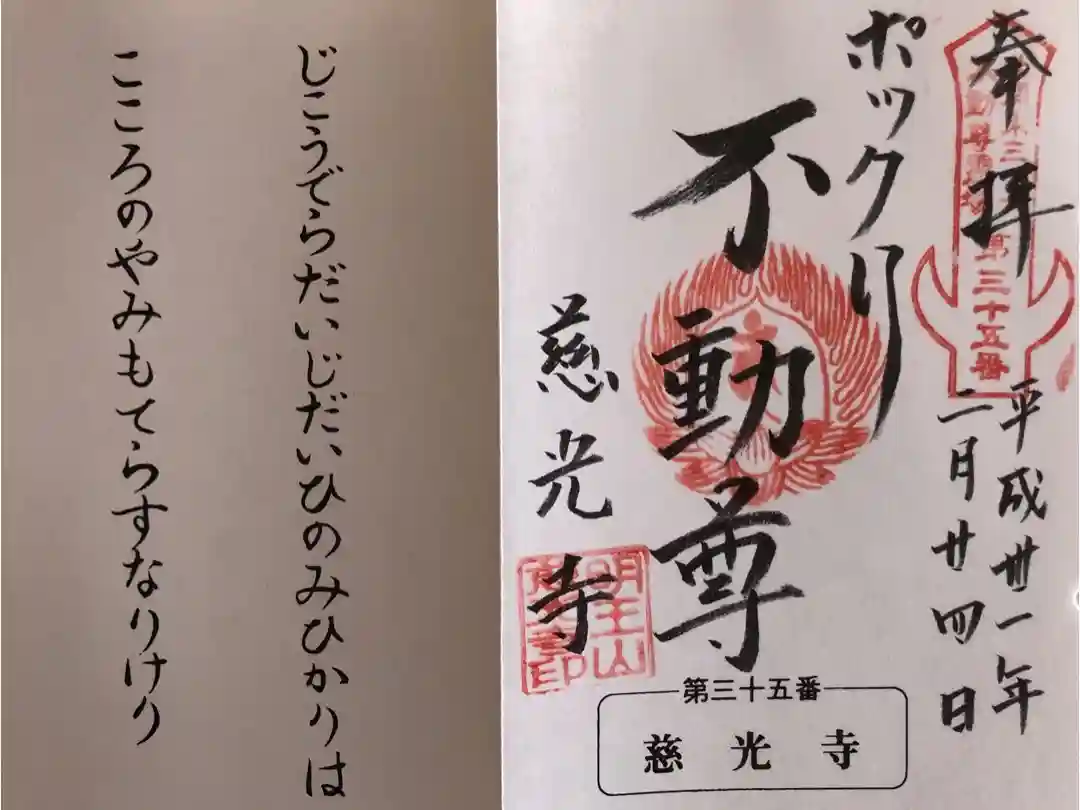 じこうでらだいじだいひのみひかりは
こころのやみもてらすなりけり
奉拝
第三十五番
平成卅一年
二月廿四日
ポックリ
不動尊
慈光寺
明王山
第三十五番
慈光寺